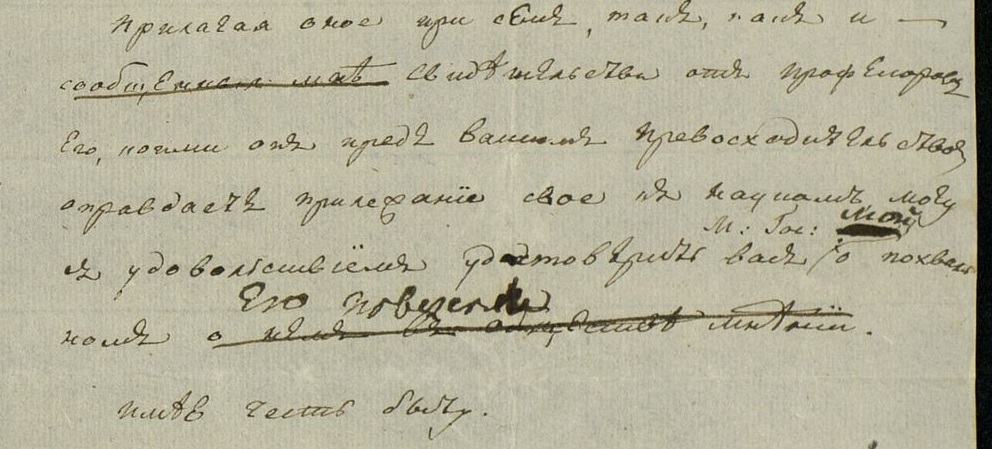 Прилагая оное при семъ, такъ, какъ и —
сообщенныя мнѣ свидѣтельства отъ профессоровъ
Его, коими онъ предъ вашимъ превосходительствомъ
оправдаетъ прилежаніе свое къ наукамъ могу
М: Гос: мой
съ удовольствіемъ удостовѣрить васъ о похваль
Его поведеніи
номъ о немъ въ обществѣ мнѣніи.
имѣю честь быть.